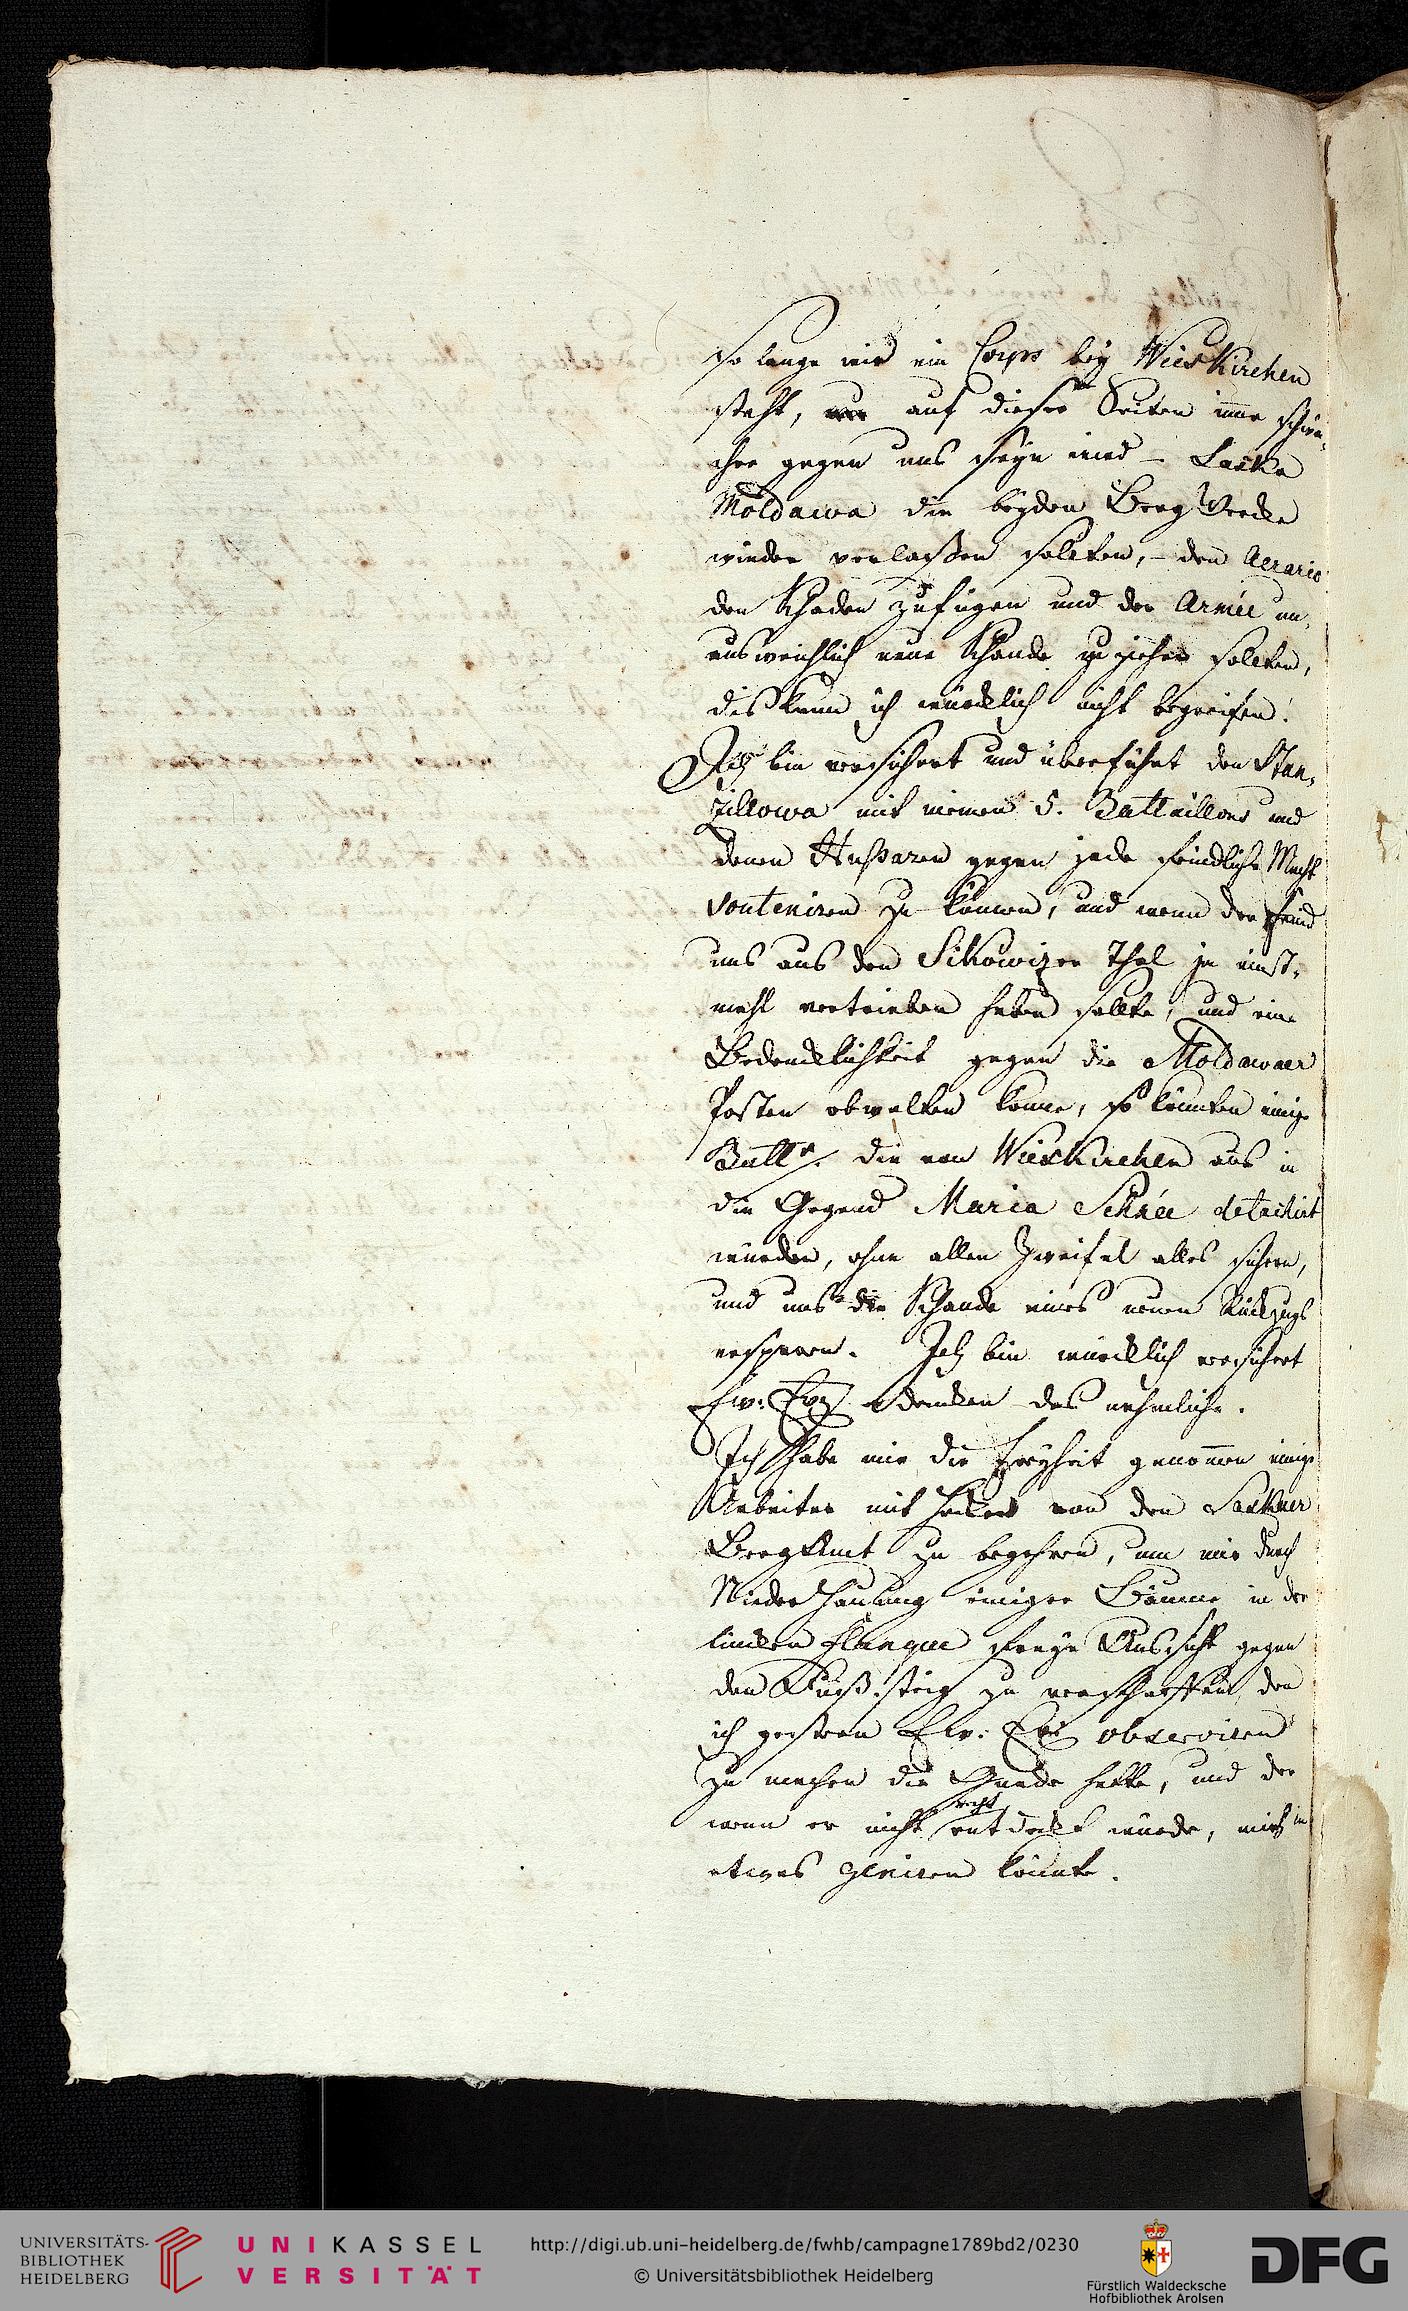 so lange wie ein Corps bey Weiskirchen
steht, nur auf dieser Seiten immer schwä-
cher gegen uns seyn wird – Saska
Moldawa die beyden BergWercke
wieder verlassen sollten, – den Aerario
den Schaden zufügen und der Armée un-
ausweichlich neue Schande zu ziehen sollten,
dis kann ich würcklich nicht begreifen!
Ich bin versichert und überführt den Stan-
zillowa mit meinen 5. Battaillons und
denen Hußaren gegen jede feindliche Macht
souteniren zu können, und wenn der Feind
uns aus den Sikowizer Thal ja einst-
mahl vertrieben haben sollte, und eine
Bedencklichkeit gegen die Moldawaer
Posten obwalten könne, so könnten einige
Batt: die von Weiskirchen aus in
die Gegend Maria Schnée detachirt
würden, ohne allen Zweifel alles sichern,
und uns die Schande eines neuen Rückzugs
ersparen. Ich bin würcklich versichert
Ew: Exz dencken das nehmliche.
Ich habe mir die Freyheit genommen einige
Arbeiter mit Hacken von den Saskaer
BergAmt zu begehren, um mir durch
NiederHauung einiger Bäume in der
lincken Flanque freye Aussicht gegen
den Fuß:steig zu verschaffen, den
ich gestern Ew: Exz observiren
zu machen die Gnade hatte, und der
wenn er nicht recht entdeckt würde, mich in
etwas geniren könnte.
UNIVERSITÄTS-
BIBLIOTHEK
HEIDELBERG
UNIKASSEL
VERSITÄT
http://digi.ub.uni-heidelberg.de/fwhb/campagne1789bd2/0230
© Universitätsbibliothek Heidelberg
Fürstlich Waldecksche
Hofbibliothek Arolsen
DFG